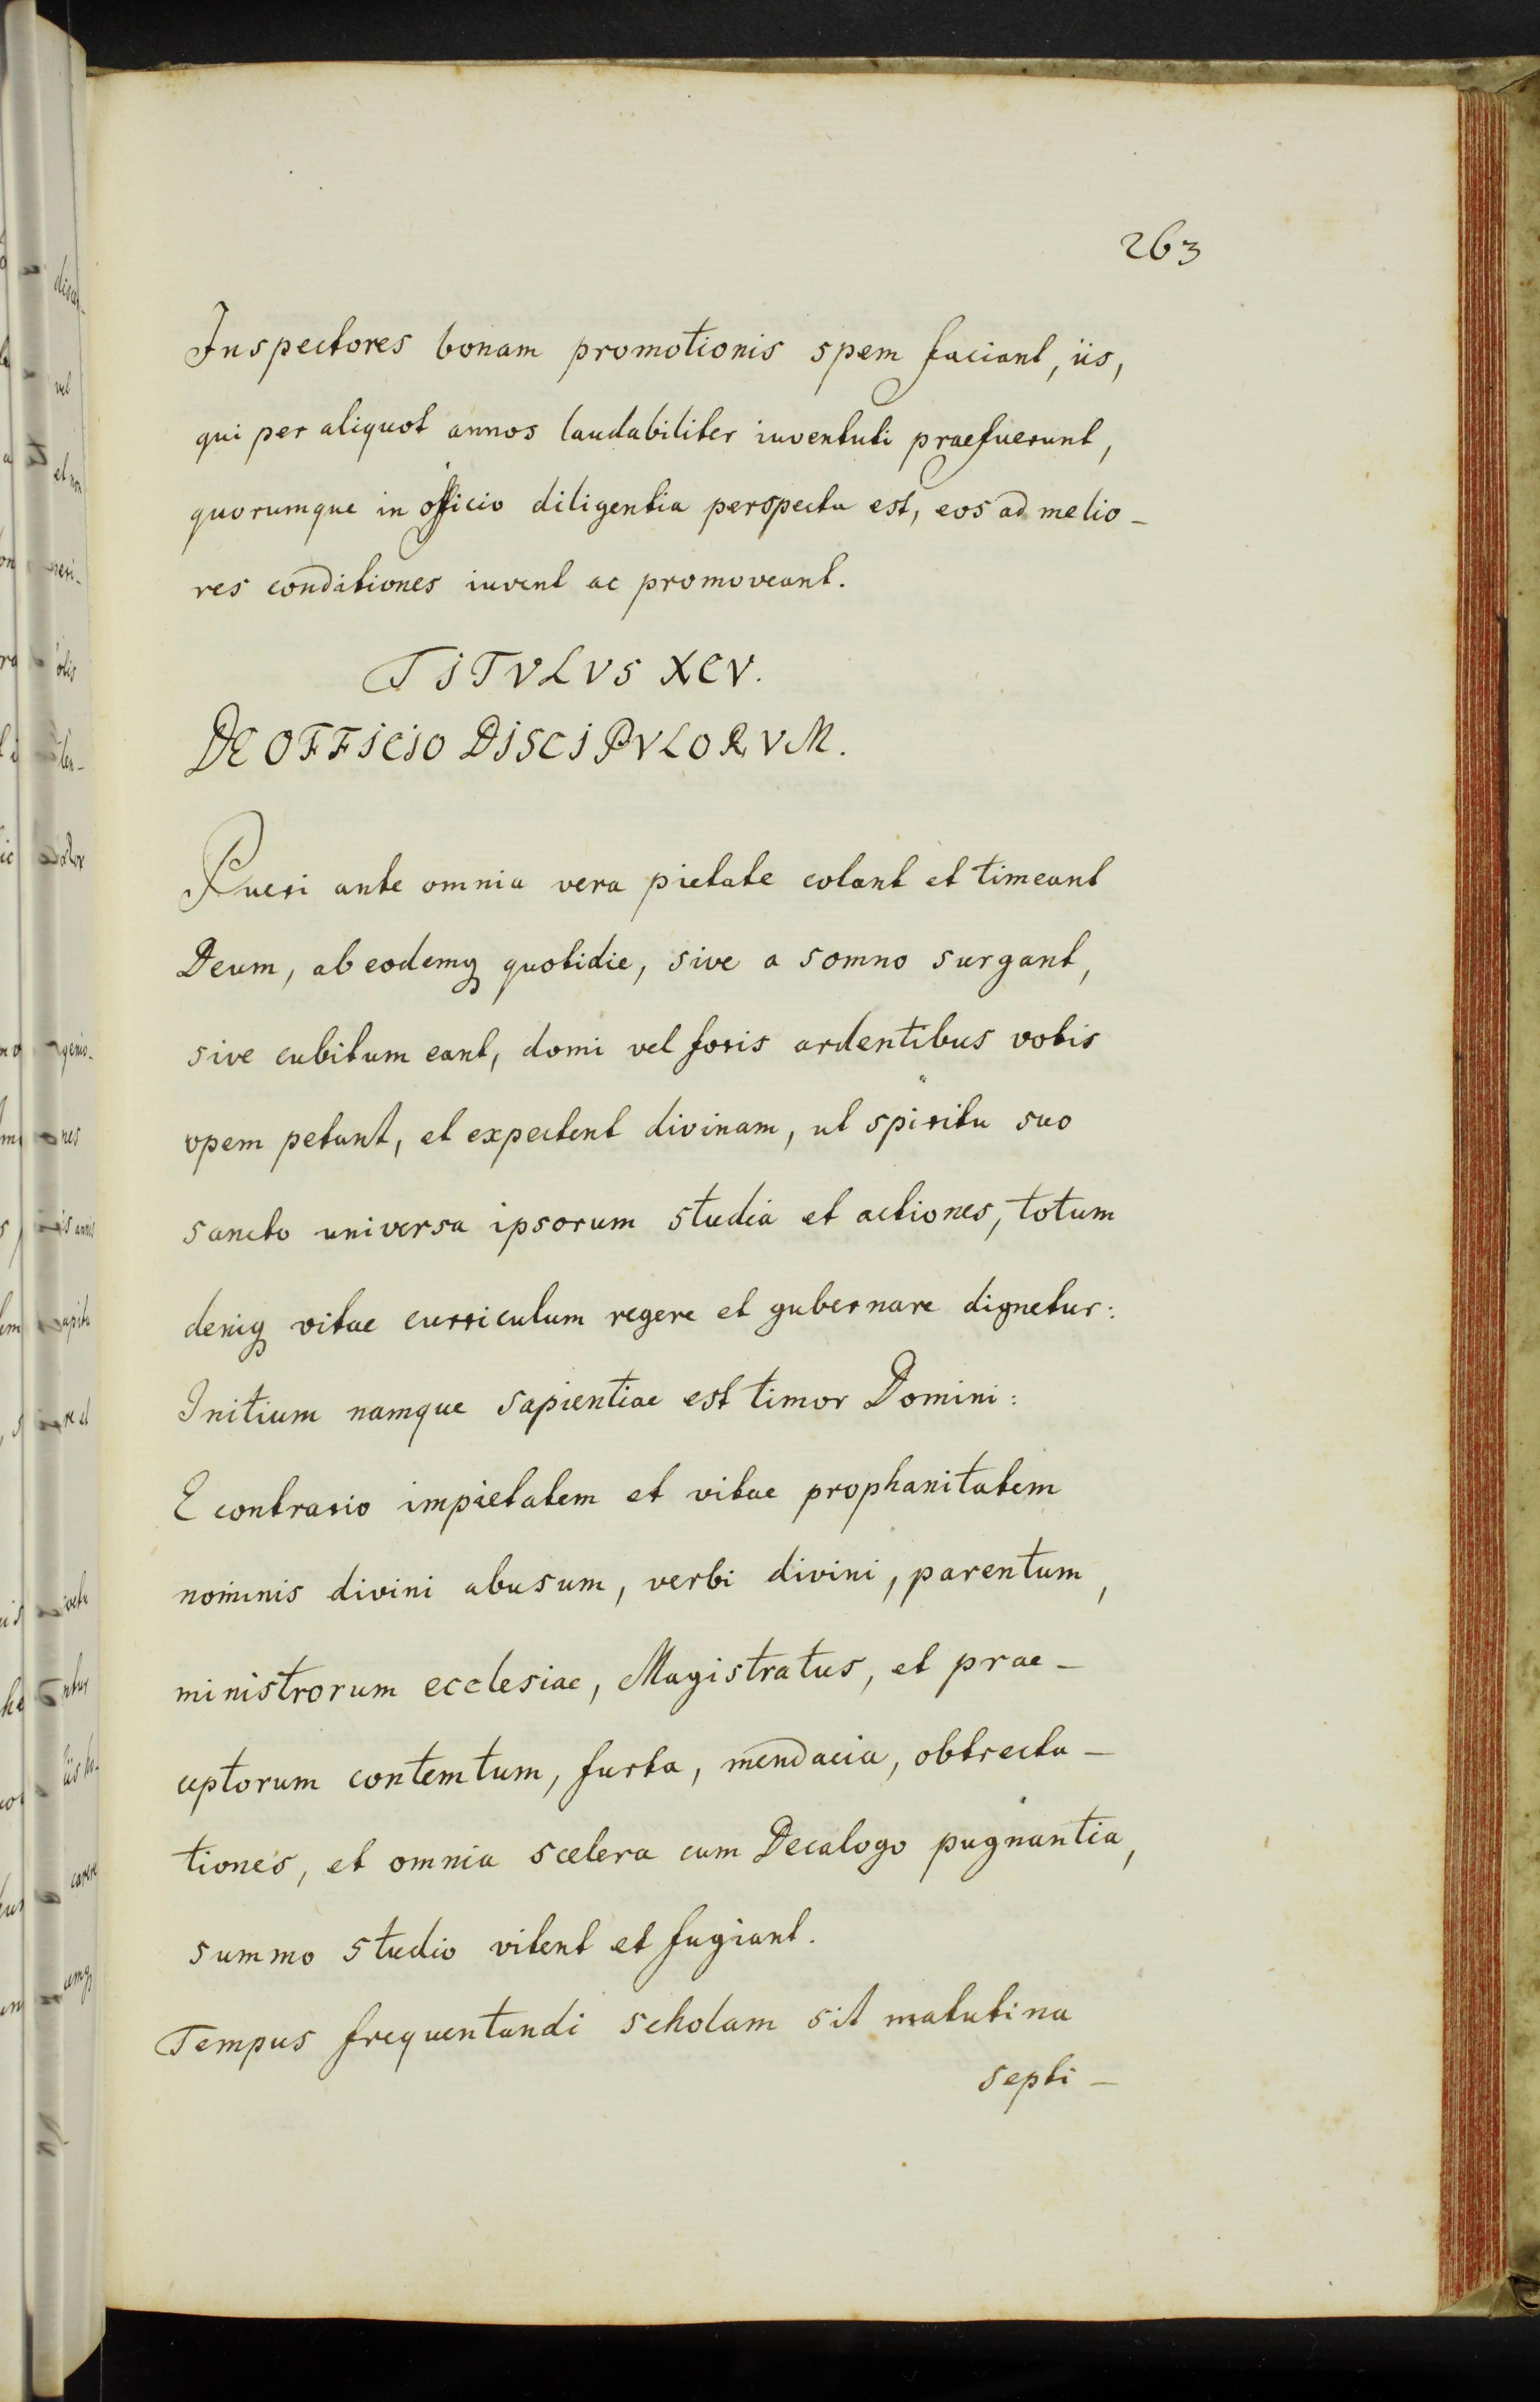 263
Inspectores bonam promotionis spem faciant, iis,
qui per aliquot annos laudabiliter iuventuti praefuerunt,
quorumque in officio diligentia perspecta est, eos ad melio-
res conditiones iuvent ac promoveant.
TITVLVS XCV.
DE OFFICIO DISCIPVLORVM.
Pueri ante omnia vera pietate colant et timeant
Deum, ab eodemq quotidie, sive a somno surgant,
sive cubitum eant, domi vel foris ardentibus votis
opem petant, et expectent divinam, ut spiritu suo
sancto universa ipsorum studia et actiones, totum
deniq vitae curriculum regere et gubernare dignetur:
Initium namque sapientiae est timor Domini:
E contrario impietatem et vitae prophanitatem
nominis divini abusum, verbi divini, parentum,
ministrorum ecclesiae, Magistratus, et prae-
ceptorum contemtum, furta, mendacia, obtrecta-
tiones, et omnia scelera cum Decalogo pugnantia,
summo studio vitent et fugiant.
Tempus frequentandi scholam sit matutina
septi-